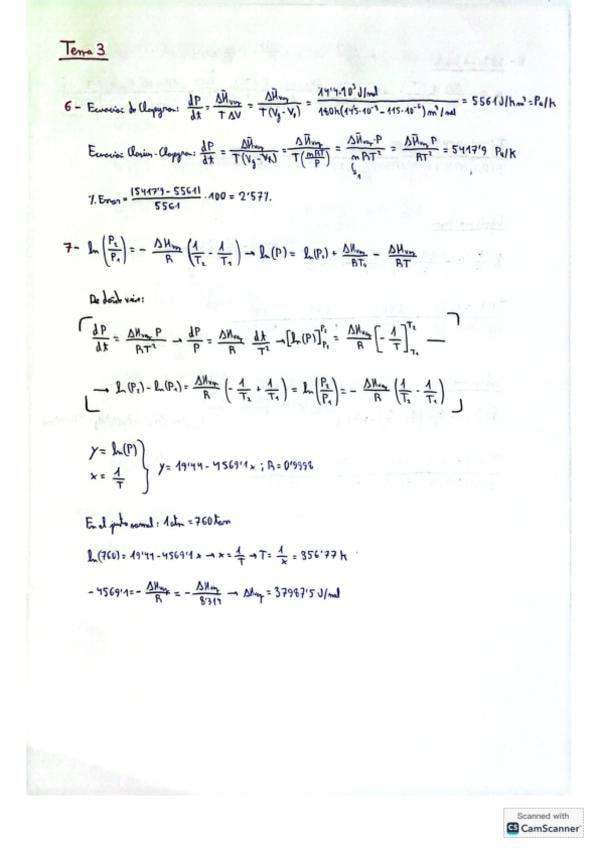 Tema 3
6- Ecuación de Clapeyron: dP/dt = ΔH̄vap/(T ΔV) = ΔH̄vap/(T(Vg-Vl)) = 14'4·10³ J/mol / (180k(14'5·10⁻³ - 115·10⁻⁶) m³/mol) = 5561 J/km³ = Pa/k
Ecuación Clausius-Clapeyron: dP/dt = ΔH̄vap/(T(Vg-Vl)) = ΔH̄vap/(T(nRT/P)) = ΔH̄vap·P/(nRT²) = ΔH̄vap P/(RT²) = 5417'9 Pa/K
1
% Error = |5417'9-5561|/5561 · 100 = 2'57%
7- ln(P₂/P₁) = - ΔHvap/R (1/T₂ - 1/T₁) → ln(P) = ln(P₁) + ΔHvap/RT₁ - ΔHvap/RT
De donde viene:
dP/dt = ΔHvap P/RT² → dP/P = ΔHvap/R dt/T² → [ln(P)]P₁P₂ = ΔHvap/R [-1/T]T₁T₂ —
→ ln(P₂)-ln(P₁) = ΔHvap/R (-1/T₂ + 1/T₁) = ln(P₂/P₁) = - ΔHvap/R (1/T₂ - 1/T₁)
y = ln(P)
x = 1/T
y = 19'44 - 4569'1x ; R = 0'9998
En el punto normal: 1atm = 760torr
ln(760) = 19'44 - 4569'1x → x = 1/T → T = 1/x = 356'77 k
-4569'1 = - ΔHvap/R = - ΔHvap/8'314 → ΔHvap = 37987'5 J/mol
Scanned with
CS CamScanner